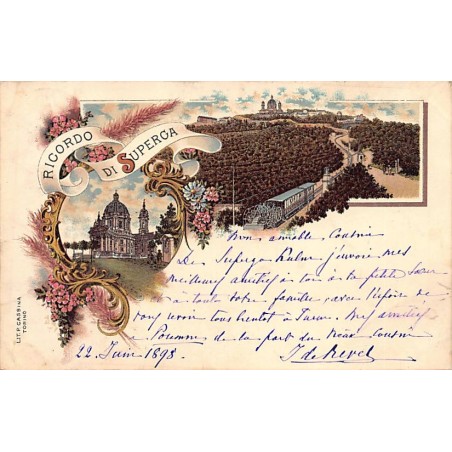 RICORDO
DI SUPERGA
Mon aimable Cousin
De Superga Kulm j'envoie mes
meilleurs amitiés à toi à la petite
à toute votre famille, avec l'espoir de
vous voir tous bientôt à Turin. Mes amitiés
à de la part du Vieux Cousin
22 Juin 1898.
LIT. P. CASSINA
TORINO